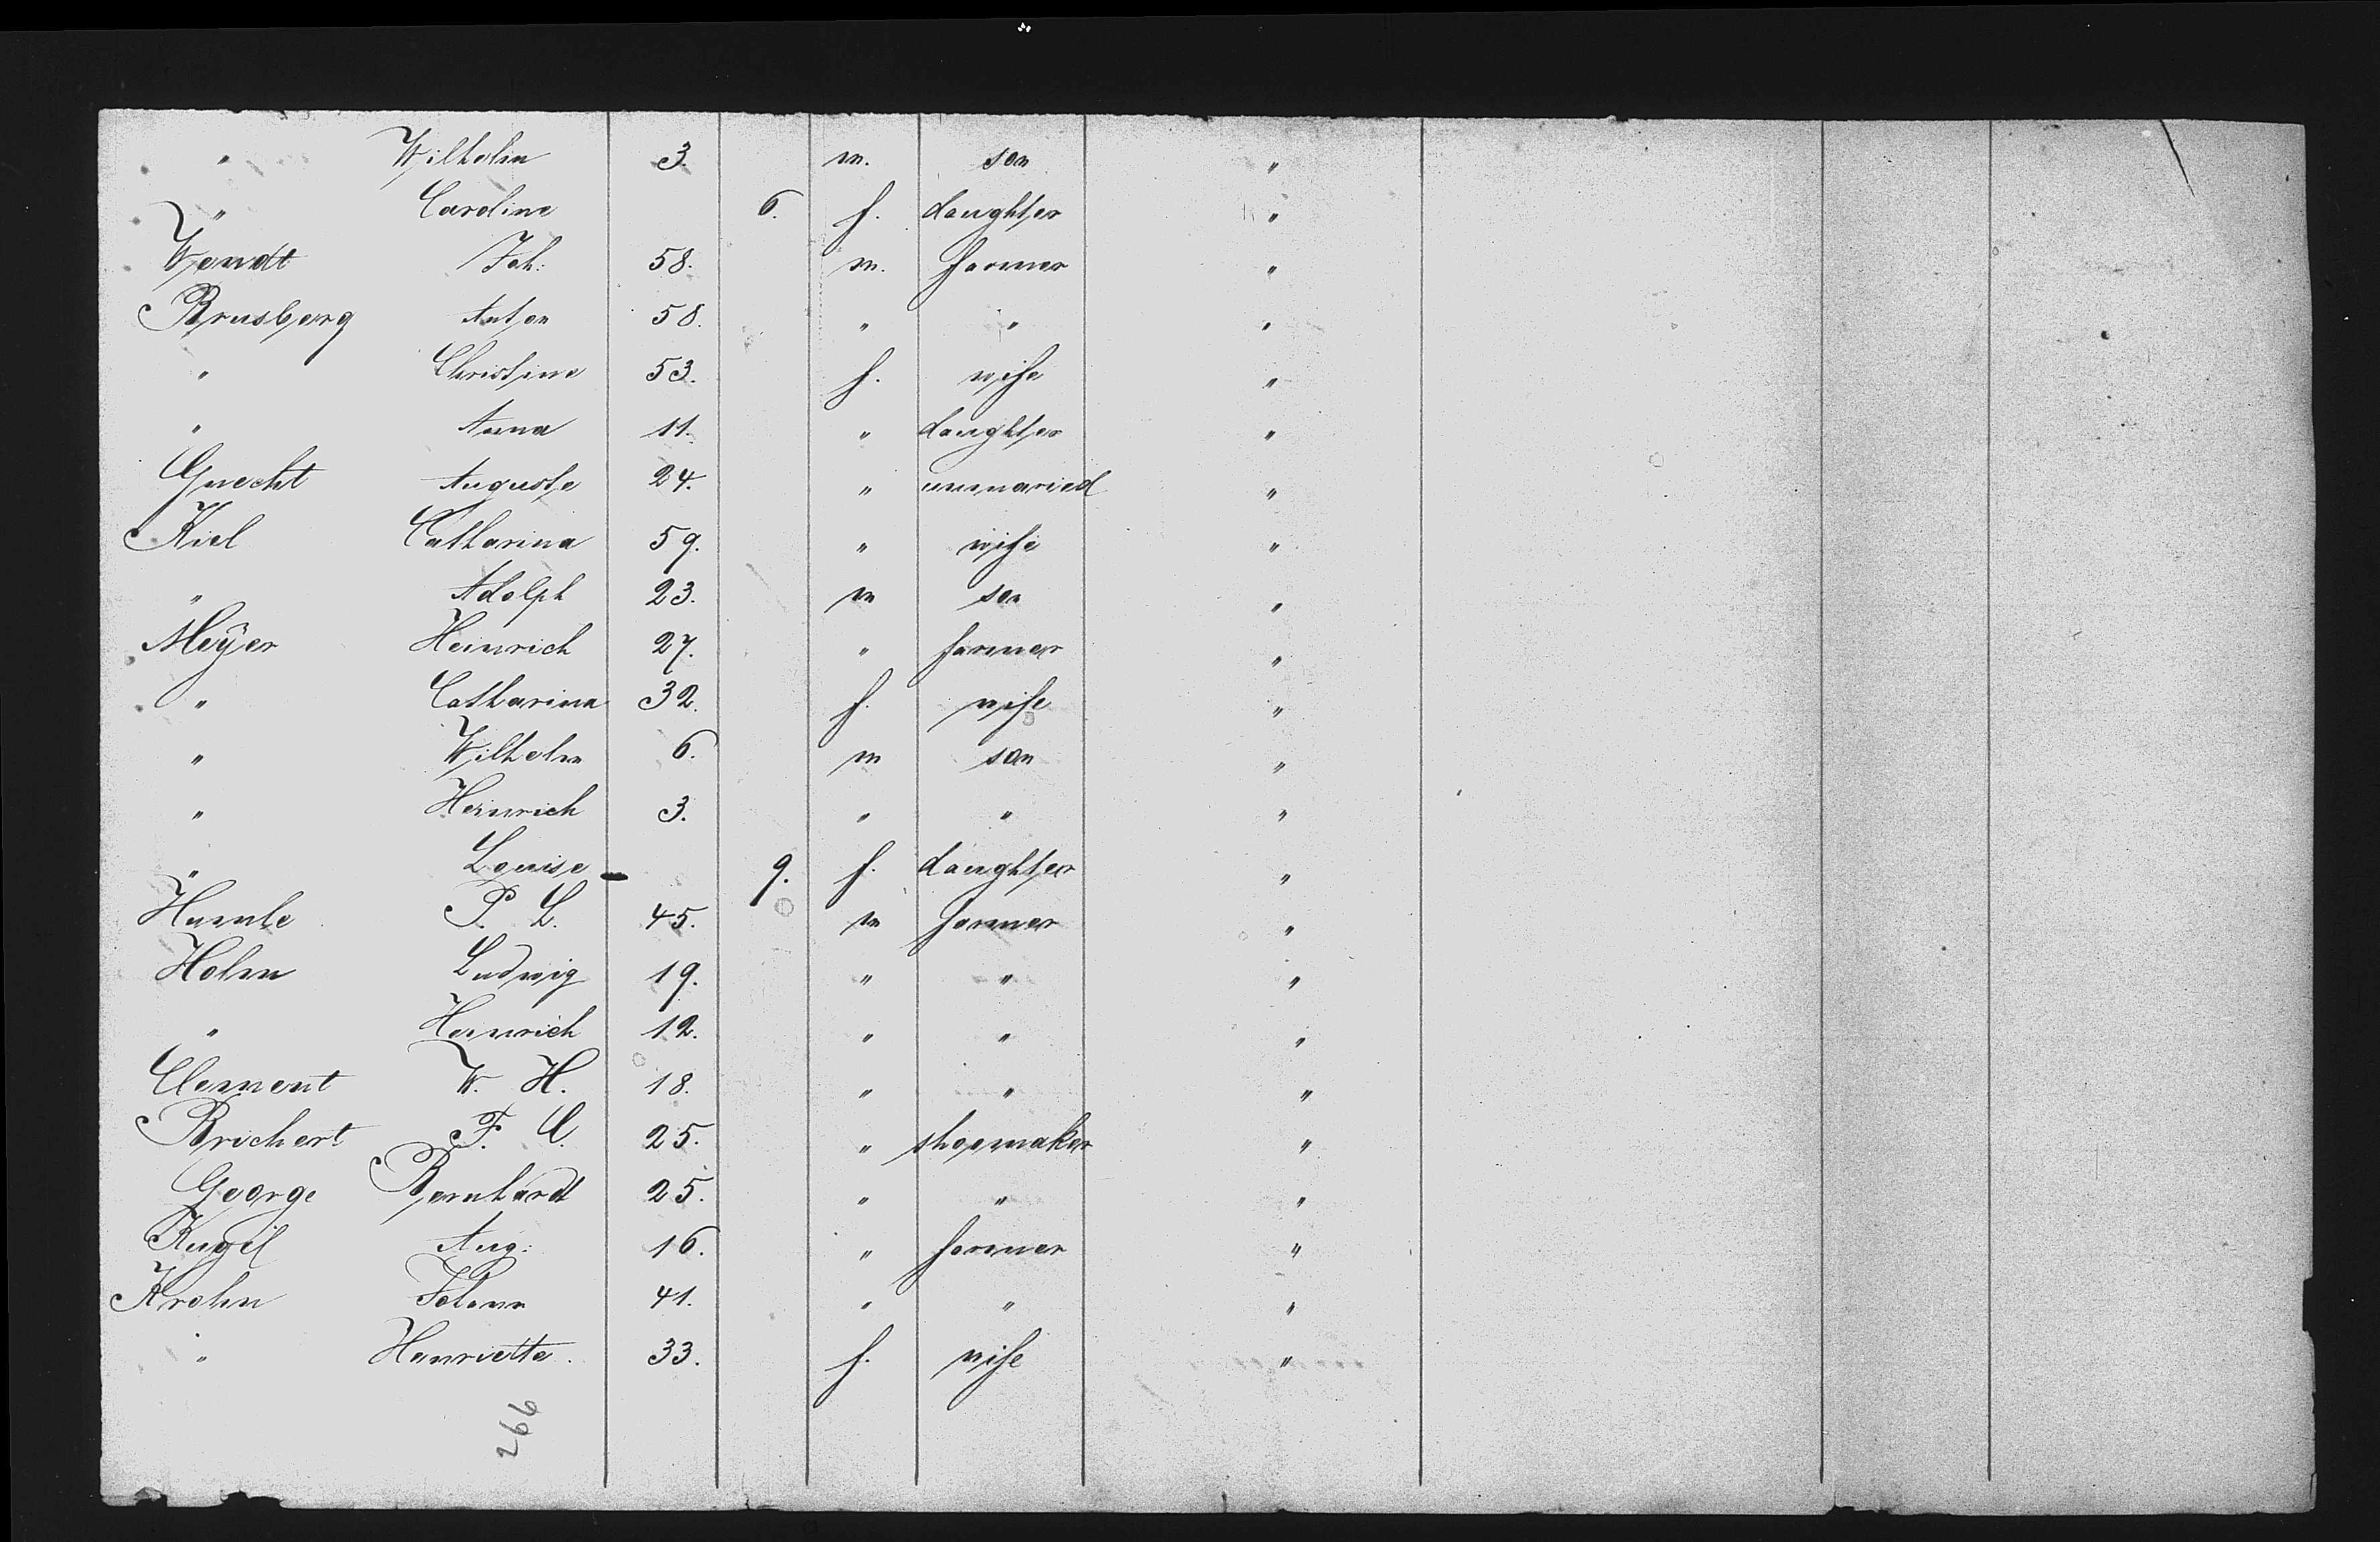 " Wilhelm 3. m. son "
" Caroline 6. f. daughter "
Wendt Joh: 58. m. farmer "
Brusberg Anton 58. " " "
" Christine 53. f. wife "
" Anna 11. " daughter "
Gnecht Auguste 24. " unmaried "
Kiel Catharina 59. " wife "
" Adolph 23. m son "
Meÿer Heinrich 27. " farmer "
" Catharina 32. f. wife "
" Wilhelm 6. m son "
" Heinrich 3. " " "
" Louise 9. f. daughter "
Humle P. L. 45. m farmer "
Holm Ludwig 19. " " "
" Heinrich 12. " " "
Clement W. H. 18. " " "
Brichert F. C. 25. " shoemaker "
George Bernhardt 25. " " "
Kugel Aug: 16. " farmer "
Krohn Johann 41. " " "
" Henriette. 33. f. wife "
266